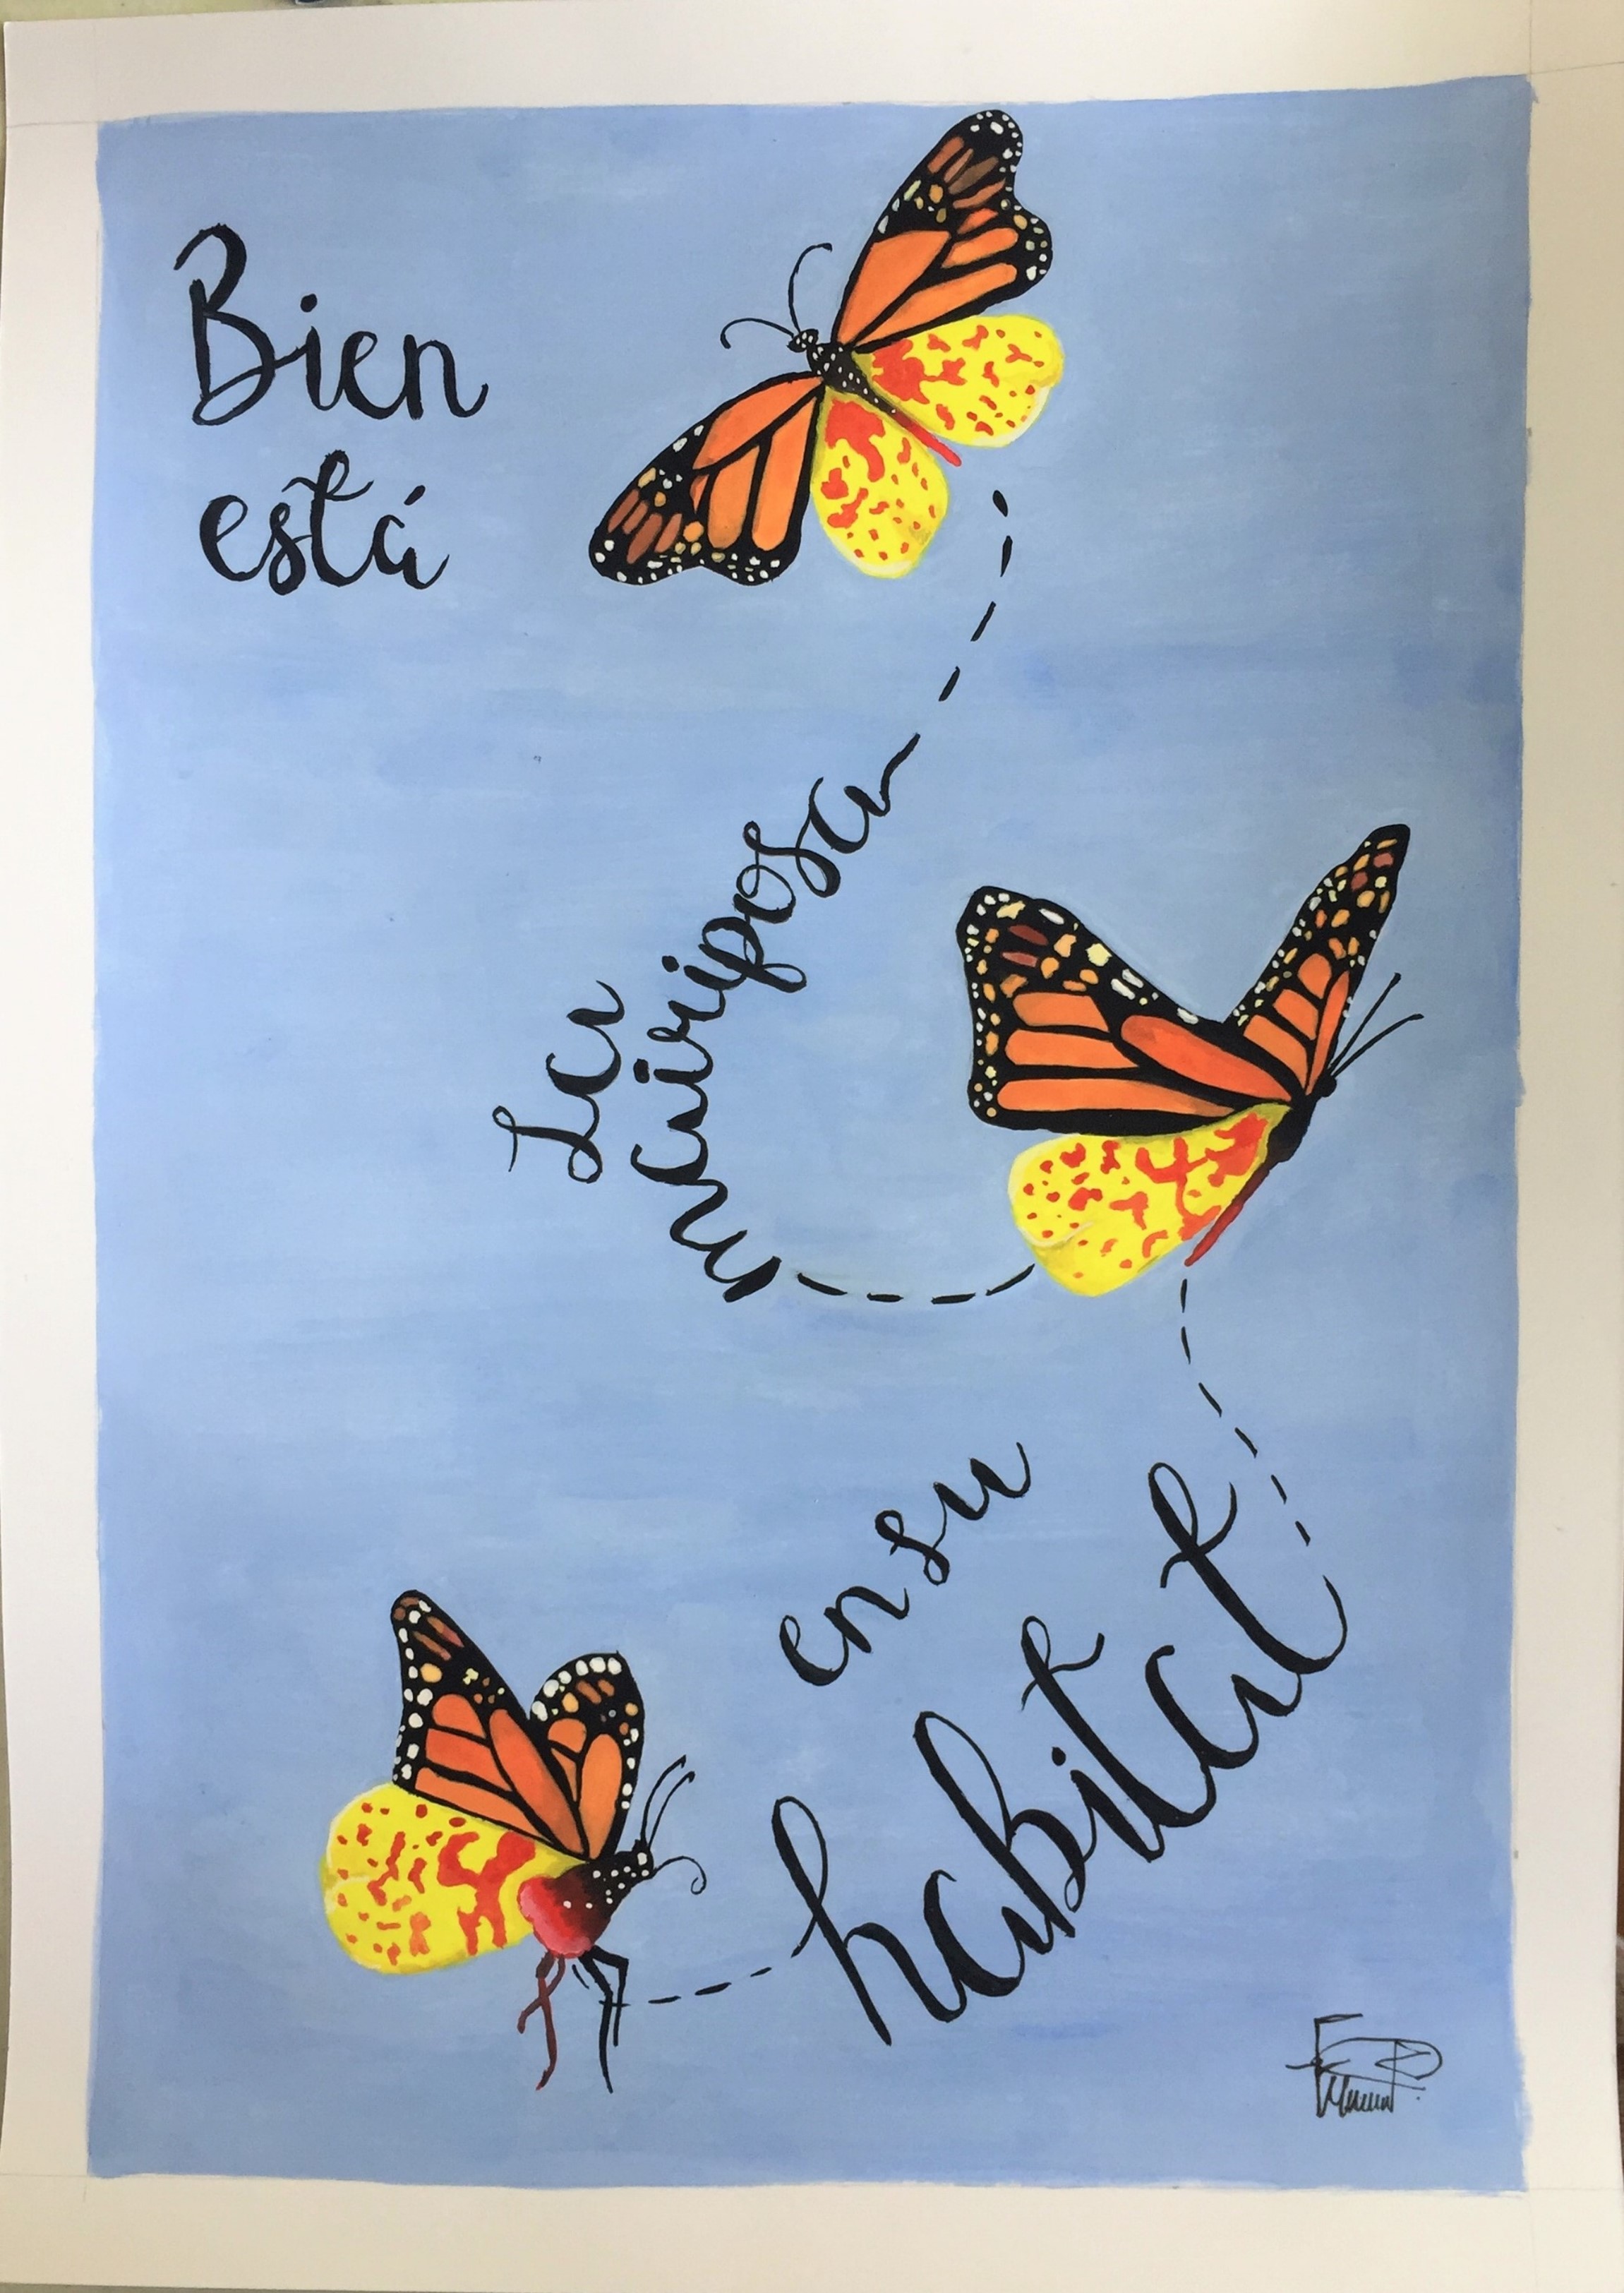 Bien
está
La
mariposa
en su
habitat